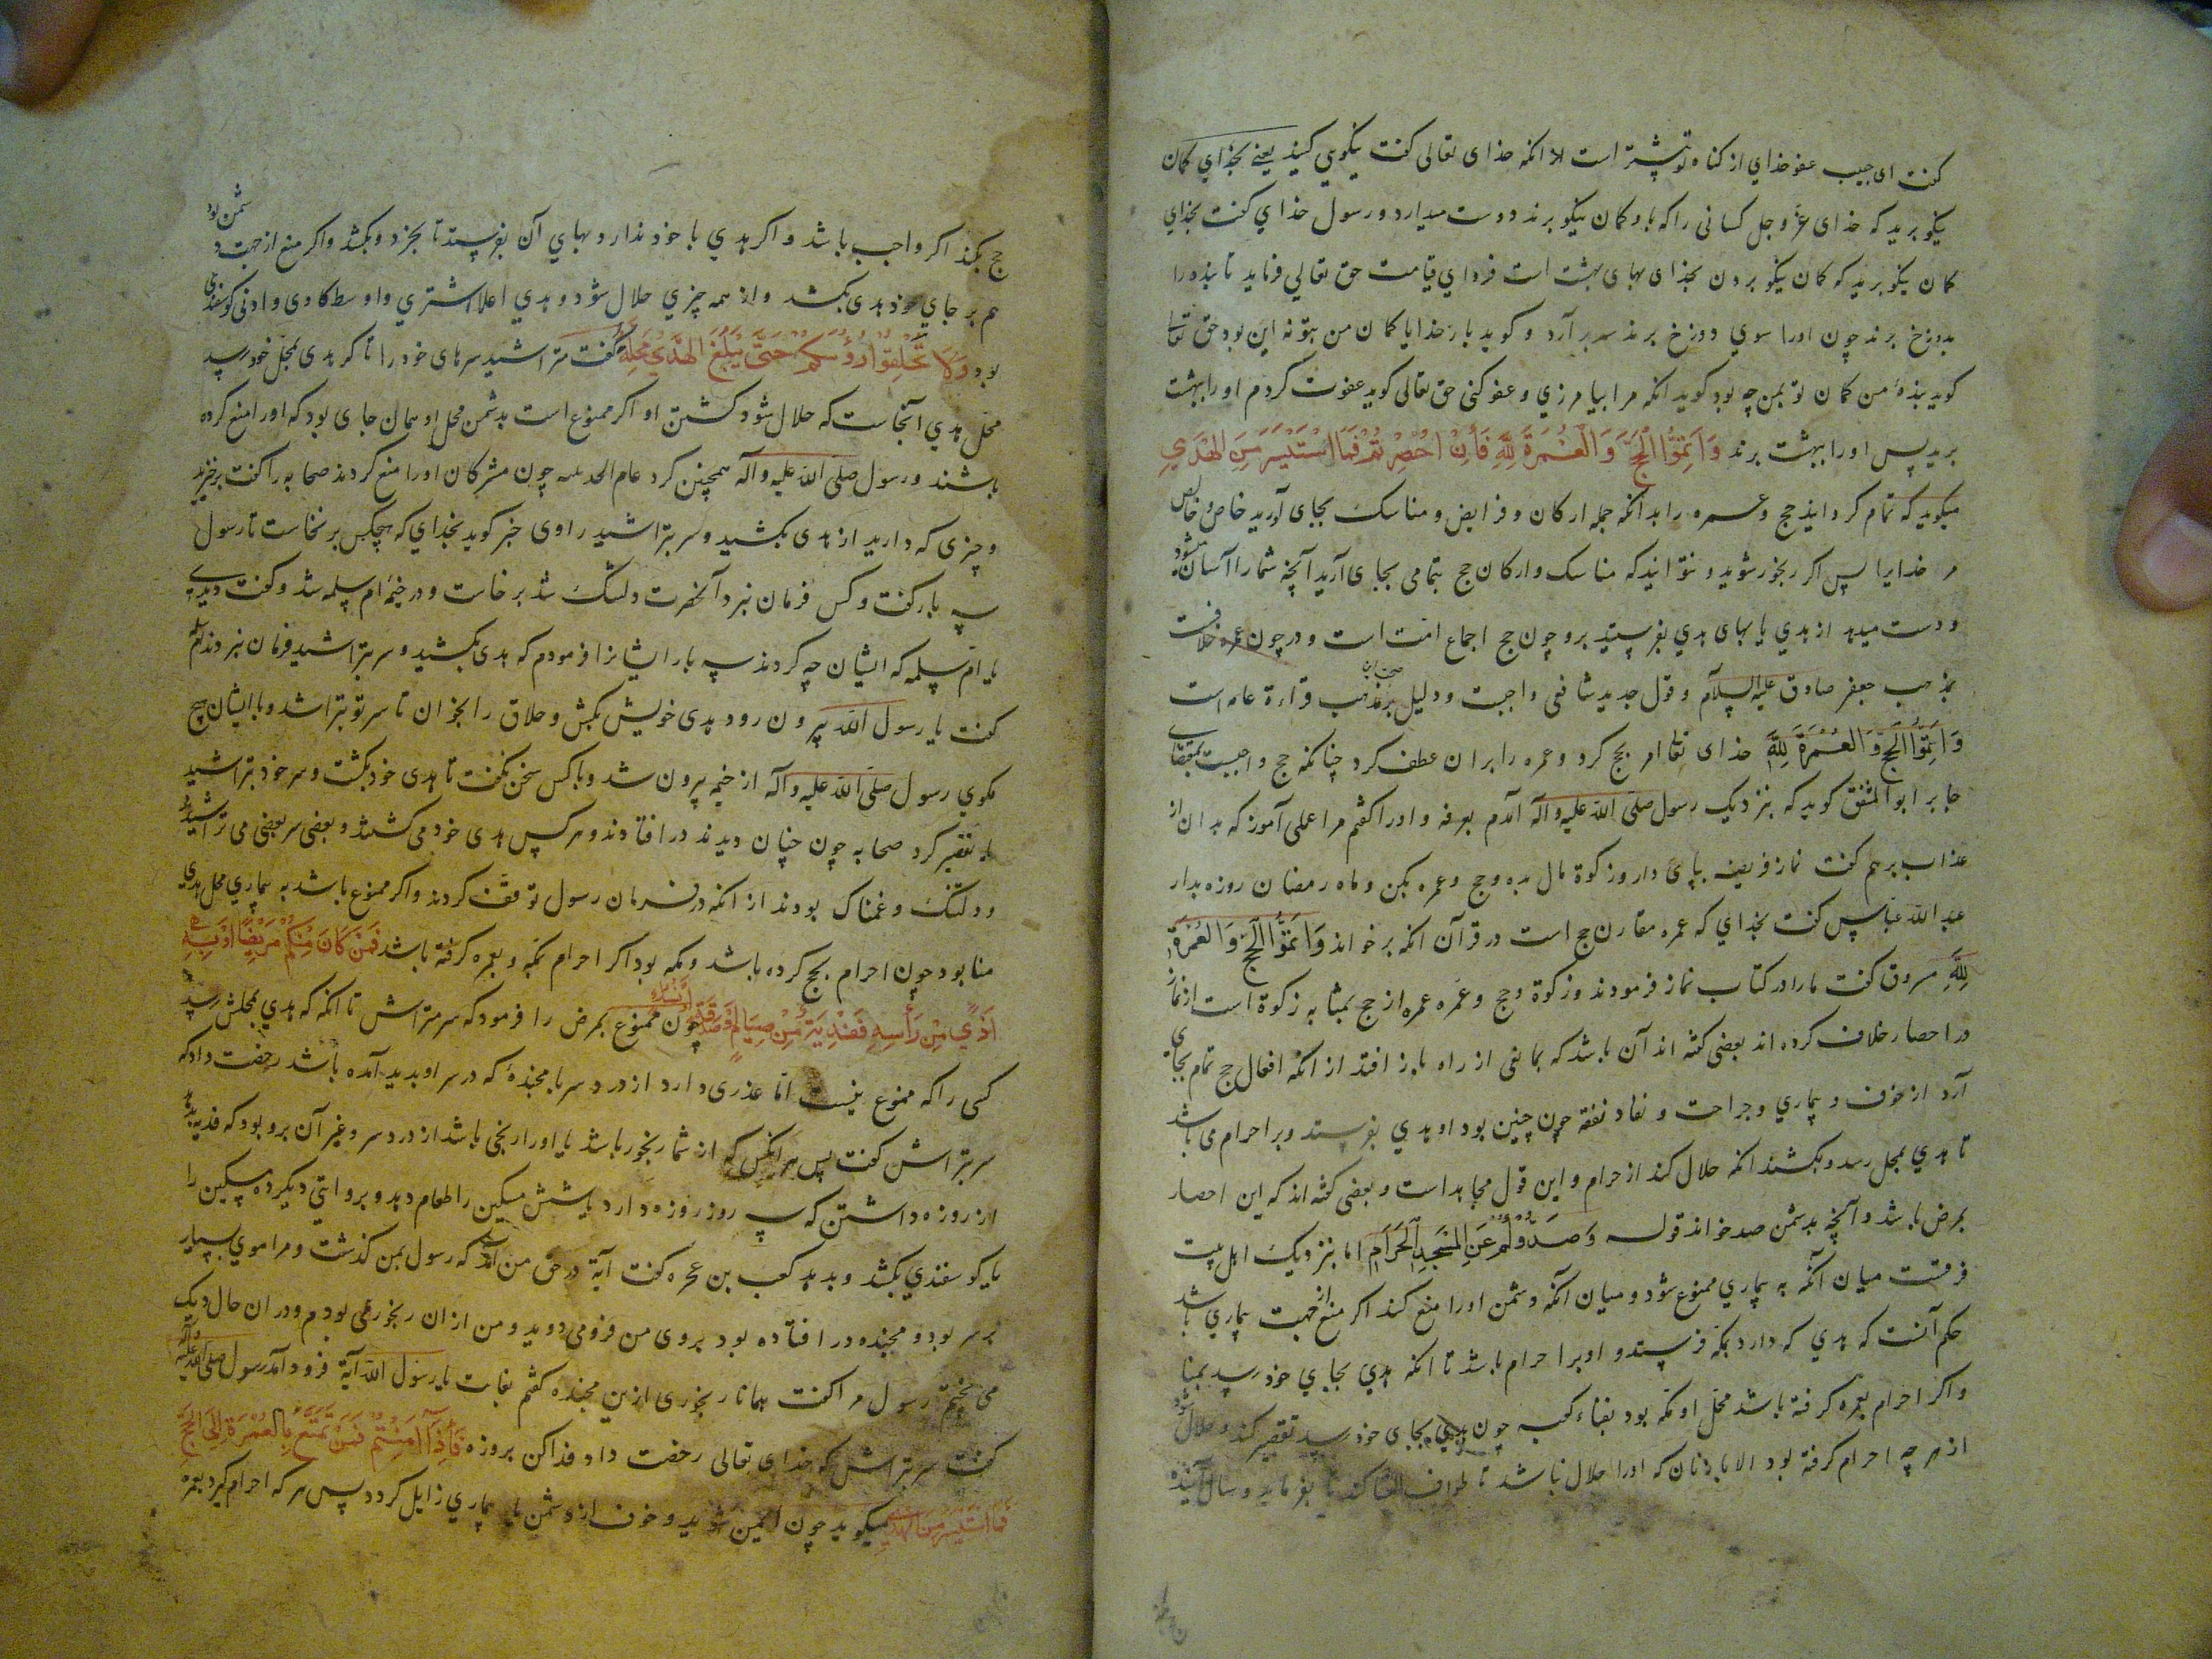 گفت ای حبیب عفو خدای از گناه تو بیشتر است الا انکه خدای تعالی گفت نیکویی کنید یعنی بخدای گمان
نیکو برید که خدای عزّ و جل کسانی را که باو گمان نیکو برند دوست میدارد و رسول خدای گفت بخدای
گمان نیکو برید که گمان نیکو بردن بخدای بهای بهشت است فردای قیامت حق تعالی فرماید تا بنده را
بدوزخ برند چون اورا سوی دوزخ برند سر بر آرد و گوید بار خدایا گمان من بتو نه این بود حق تعالی
گوید بندهٔ من گمان تو بمن چه بود گوید انکه مرا بیامرزی و عفو کنی حق تعالی گوید عفوت کردم اورا ببهشت
برید پس اورا ببهشت برند وَاَتِمُّوا الْحَجَّ وَالْعُمْرَةَ لِلّٰهِ فَاِنْ اُحْصِرْتُمْ فَمَا اسْتَیْسَرَ مِنَ الْهَدْیِ
میگوید که تمام گردانید حج و عمره را بدانکه جمله ارکان و فرایض و مناسک بجای آورید خاص و خالص
مر خدایرا پس اگر رنجور شوید و نتوانید که مناسک و ارکان حج بتمامی بجای آرید آنچه شما را آسان میشود
و دست میدهد از هدی یا بهای هدی بفرستید برو چون حج اجماع امّت است و در چون عمره خلافست
بمذهب جعفر صادق علیه السلام و قول جدید شافعی واجبت و دلیل بر صحت ان مذهب قراءة عامه است
وَاَتِمُّوا الْحَجَّ وَالْعُمْرَةَ لِلّٰهِ خدای تعا امر بحج کرد و عمره را بران عطف کرد چنانکه حج واجبست بمقتضای
جابر ابو المنتفق گوید که بنزدیک رسول صلّی اللّه علیه و آله آمدم بعرفه و اورا گفتم مرا عملی آموز که بدان از
عذاب برهم گفت نماز فریضه بپای دار و زکوة مال بده و حج و عمره بکن و ماه رمضان روزه بدار
عبد اللّه عبّاس گفت بخدای که عمره مقارن حج است در قرآن انکه برخواند وَاَتِمُّوا الْحَجَّ وَالْعُمْرَةَ
لِلّٰهِ مسروق گفت ما را در کتاب نماز فرمودند و زکوة و حج و عمره عمره از حج بمثابه زکوة است از نماز
در احصار خلاف کرده اند بعضی گفته اند آن باشد که بمانعی از راه باز افتد از انکه افعال حج تمام بجای
آرد از خوف و بیماری و جراحت و نفاد نفقه چون چنین بود او هدی بفرستد و بر احرام می باشد
تا هدی بمحل رسد و بکشند انکه حلال کند از حرام و این قول مجاهد است و بعضی گفته اند که این احصار
بمرض باشد و آنچه بدشمن صد خواند قوله وَصَدُّوکُمْ عَنِ الْمَسْجِدِ الْحَرَامِ اما بنزدیک اهل بیت
فرقست میان آنکه به بیماری ممنوع شود و میان آنکه دشمن اورا منع کند اگر منع از جهت بیماری باشد
حکم آنست که هدی که دارد بمکه فرستد و او بر احرام باشد تا انکه هدی بجای خود رسد بمنا
و اگر احرام بعمره گرفته باشد محلّ او مکّه بود بفناء کعبه چون هدی بجای خود رسد تقصیر کند و حلال شود
از هر چه احرام گرفته بود الا با زنان که اورا حلال نباشد تا طواف النسا کند یا بفرماید و سال آینده
حج بکند اگر واجب باشد و اگر هدی با خود ندارد بهای آن بفرستد تا بخرد و بکشد و اگر منع از جهت دشمن بود
هم بر جای خود هدی بکشد و از همه چیزی حلال شود و هدی اعلا اشتری و اوسط گاوی و ادنی گوسفندی
بود وَلَا تَحْلِقُوا رُؤُسَکُمْ حَتّٰی یَبْلُغَ الْهَدْیُ مَحِلَّهُ گفت متراشید سرهای خود را تا که هدی بمحلّ خود رسد
محلّ هدی آنجاست که حلال شود کشتن او اگر ممنوع است بدشمن محل او همان جای بود که اورا منع کرده
باشند و رسول صلّی اللّه علیه و آله همچنین کرد عام الحدیبیه چون مشرکان اورا منع کردند صحابه را گفت برخیزید
و چیزی که دارید از هدی بکشید و سر بتراشید راوی خبر گوید بخدای که هیچکس برنخاست تا رسول
سه بار گفت و کس فرمان نبرد آنحضرت دلتنگ شد برخاست و در خیمه ام سلمه شد و گفت دیدی
یا امّ سلمه که ایشان چه کردند سه بار ایشانرا فرمودم که هدی بکشید و سر بتراشید فرمان نبردند
گفت یا رسول اللّه بیرون رو و هدی خویش بکش و حلاق را بخوان تا سر تو بتراشد و با ایشان هیچ
مگوی رسول صلّی اللّه علیه و آله از خیمه بیرون شد و با کس سخن نگفت تا هدی خود بکشت و سر خود بتراشید
یا تقصیر کرد صحابه چون چنان دیدند در افتادند و هر کس هدی خود می کشتند و بعضی سر بعضی می تراشیدند
و دلتنگ و غمناک بودند از انکه در فرمان رسول توقّف کردند و اگر ممنوع باشد به بیماری محل هدی
منا بود چون احرام بحج کرده باشد و مکه بود اگر احرام بمکه و بعمره گرفته باشد فَمَنْ کَانَ مِنْکُمْ مَرِیضًا اَوْ بِهِ
اَذًی مِنْ رَأْسِهِ فَفِدْیَةٌ مِنْ صِیَامٍ اَوْ صَدَقَةٍ اَوْ نُسُکٍ چون ممنوع بمرض را فرمود که سر متراش تا انکه که هدی بمحلش رسد
کسی را که ممنوع نیست امّا عذری دارد از درد سر یا مجندهٔ که در سر او پدید آمده باشد رخصت داد که
سر بتراش گفت پس هر انکس که از شما رنجور باشد یا اورا رنجی باشد از درد سر و غیر آن برو بود که فدیه بدهد
از روزه داشتن که سه روز روزه دارد یا شش مسکین را طعام دهد و بروایتی دیگر ده مسکین را
یا گوسفندی بکشد و بدهد کعب بن عجره گفت آیة در حق من آمد که رسول بمن گذشت و مرا موی بسیار
بر سر بود و مجنده در افتاده بود بروی من فرو می دوید و من از ان رنجور می بودم و در ان حال دیک
می پختم رسول مرا گفت همانا رنجوری ازین مجنده گفتم بغایت یا رسول اللّه آیة فرود آمد رسول صلی اللّه علیه و آله
گفت سر بتراش که خدای تعالی رخصت داد فدا کن بروزه فَاِذَا اَمِنْتُمْ فَمَنْ تَمَتَّعَ بِالْعُمْرَةِ اِلَی الْحَجِّ
فَمَا اسْتَیْسَرَ مِنَ الْهَدْیِ میگوید چون ایمن شوید و خوف از دشمن یا بیماری زایل گردد پس هر که احرام گیرد بعمره